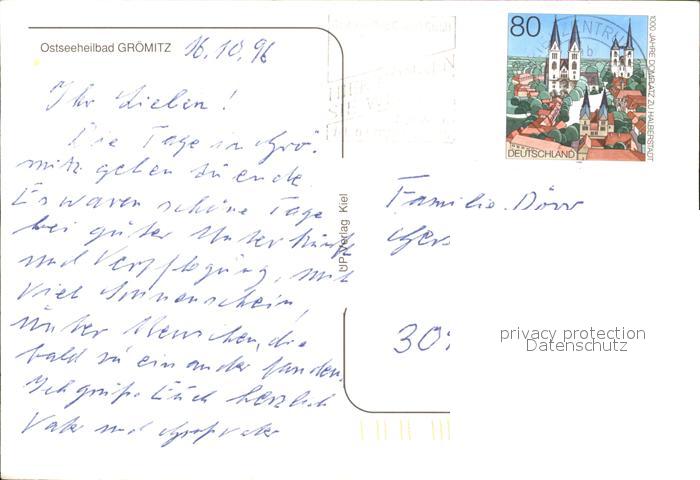 Ostseeheilbad GRÖMITZ 16.10.96
Ihr Lieben!
Die Tage in Grö-
mitz gehen zu ende.
Es waren schöne Tage
bei guter Unterkunft
und Verpflegung, mit
viel Sonnenschein,
unter Menschen, die
bald zu einander fanden.
Ich grüße Euch herzlich
Vater und Großvater
UP-Verlag Kiel
80
DEUTSCHLAND
1000 JAHRE DOMPLATZ ZU HALBERSTADT
Familie Dörr
30
privacy protection
Datenschutz